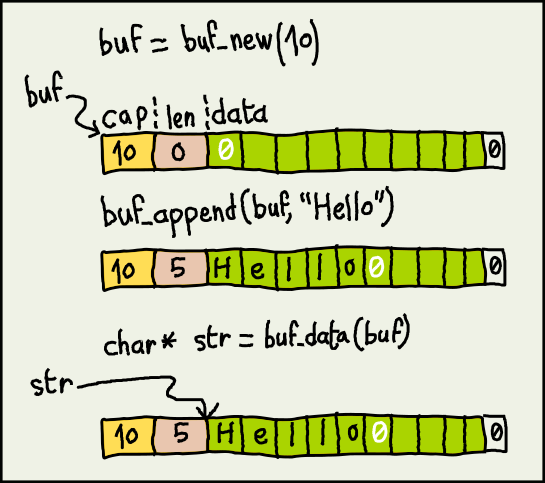 buf = buf_new(10)
buf
cap len data
10 0 0 0
buf_append(buf, "Hello")
10 5 H e l l o 0 0
char* str = buf_data(buf)
str
10 5 H e l l o 0 0